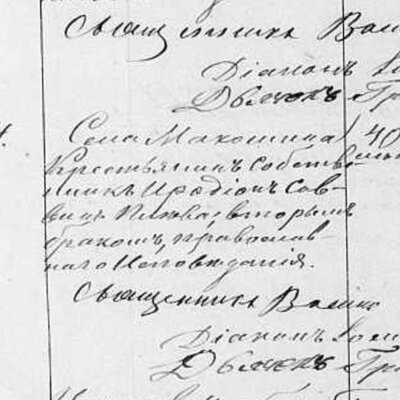 Священника Васи
Діаконъ
Дьячокъ Гр
Села Макошина 40
Крестьянинъ собств
никъ Иродіонъ Сав-
винъ вторымъ
бракомъ, православ-
наго исповеданія.
Священника Васил
Діаконъ
Дьячокъ Гр